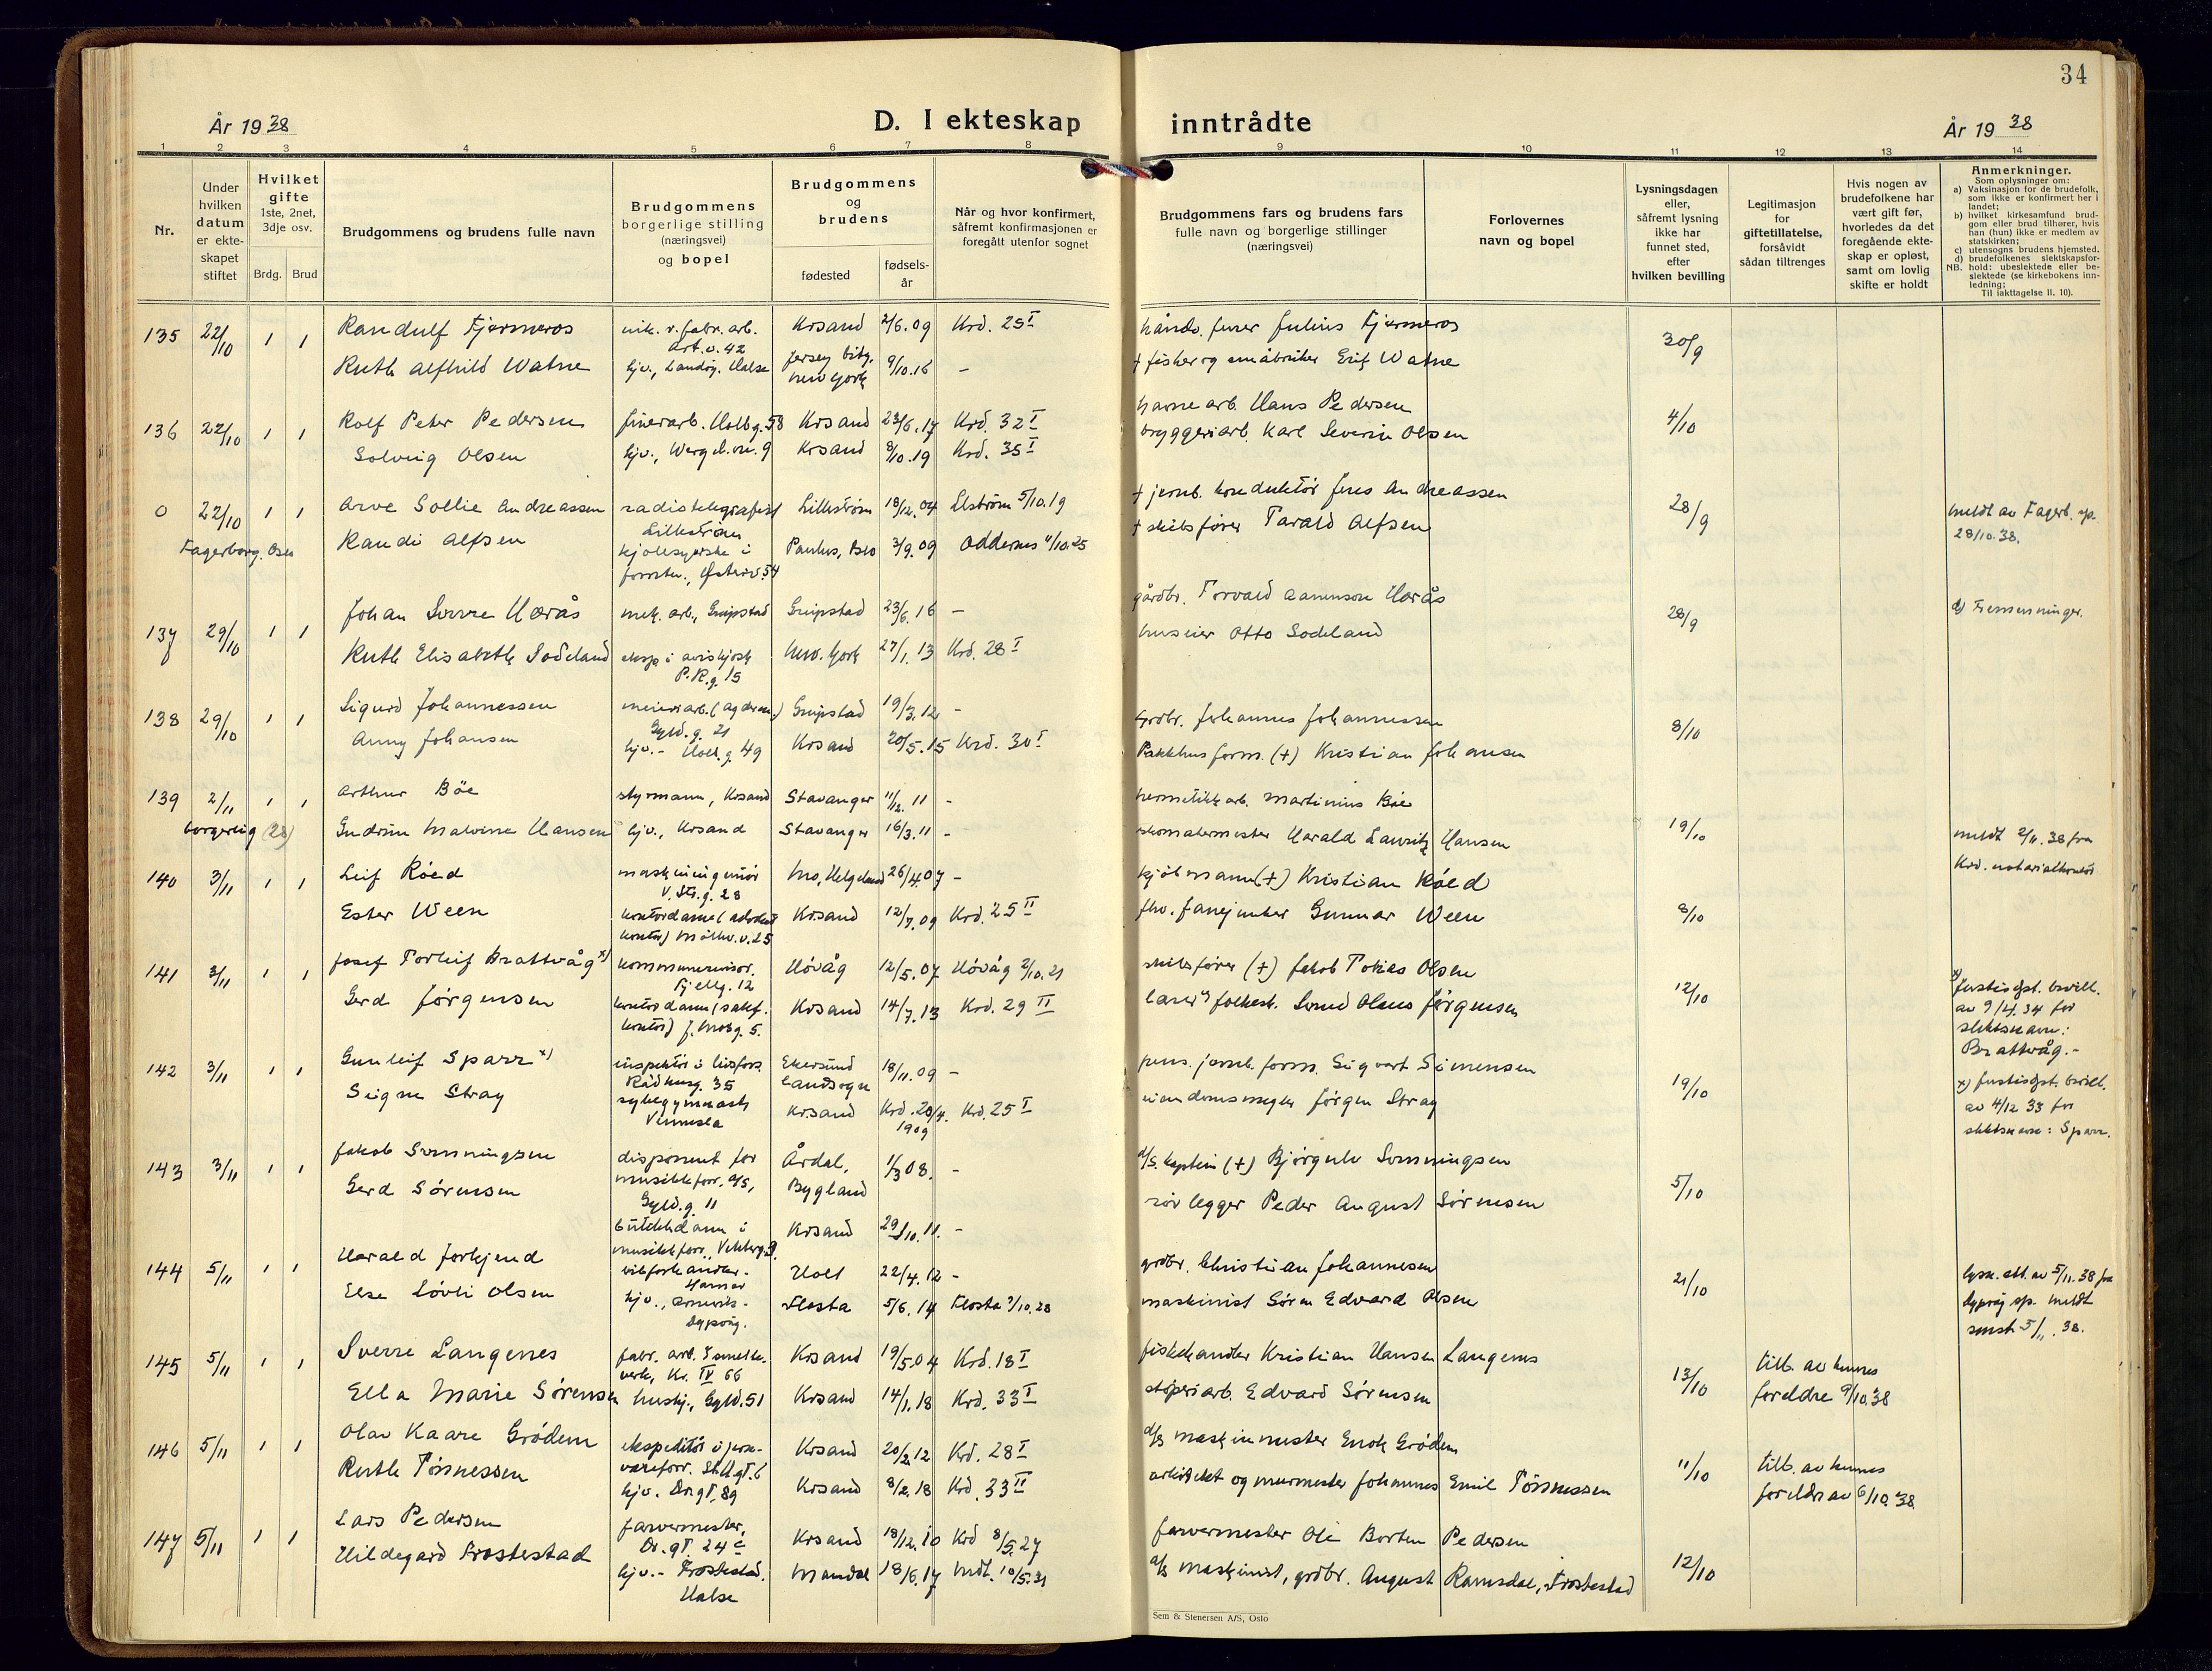 34
År 1938
D. I ekteskap inntrådte
År 1938
1 2 3 4 5 6 7 8 9 10 11 12 13 14
Nr.
Under hvilken datum er ekteskapet stiftet
Hvilket gifte 1ste, 2net, 3dje osv.
Brdg. Brud
Brudgommens og brudens fulle navn
Brudgommens borgerlige stilling (næringsvei) og bopel
Brudgommens og brudens
fødested
fødselsår
Når og hvor konfirmert, såfremt konfirmasjonen er foregått utenfor sognet
Brudgommens fars og brudens fars fulle navn og borgerlige stillinger (næringsvei)
Forlovernes navn og bopel
Lysningsdagen eller, såfremt lysning ikke har funnet sted, efter hvilken bevilling
Legitimasjon for giftetillatelse, forsåvidt sådan tiltrenges
Hvis nogen av brudefolkene har vært gift før, hvorledes da det foregående ekteskap er opløst, samt om lovlig skifte er holdt
Anmerkninger.
Som oplysninger om:
a) Vaksinasjon for de brudefolk, som ikke er konfirmert her i landet;
b) hvilket kirkesamfund brudgom eller brud tilhører, hvis han (hun) ikke er medlem av statskirken;
c) utensogns brudens hjemsted.
d) brudefolkenes slektskapsforhold: ubeslektede eller beslektede (se kirkebokens innledning;
NB.
Til iakttagelse II. 10).
135 22/10 1 1 Randulf Fjermeros Krsand 2/6.09 Krd. 25 I Julius Fjermeros 30/9
Art.v. 42
Ruth Alfhild Watne hjv., Landøy. Halse Jersey City, New York 9/10.16 - + fisker og småbruker Erik Watne
136 22/10 1 1 Rolf Peter Pedersen finérarb. Holbg. 58 Krsand 23/6.17 Krd. 32 I havnearb. Hans Pedersen 4/10
Solveig Olsen hjv., Wergel.vn. 9 Krsand 8/10.19 Krd. 35 I bryggeriarb. Karl Severin Olsen
0 22/10 1 1 Arve Sollie Andreassen radiotelegrafist Lillestrøm Lillestrøm 18/12.04 Lstrøm 5/10.19 + jernb. konduktør Jens Andreassen 28/9 meldt av Fagerb. sp. 28/10.38.
Fagerborg. Oslo Randi Alfsen kjolesyerske i Østerv. 54 Paulus, Oslo 3/9.09 Oddernes 4/10.25 + skibsfører Tarald Alfsen
137 29/10 1 1 Johan Sverre Harås mek. arb., Greipstad Greipstad 23/6.16 - gårdbr. Torvald Aanenson Harås 28/9 d) Tremenninger.
Ruth Elisabeth Sodeland eksp. i aviskjosk P.R.g. 15 New York 27/1.13 Krd. 28 I huseier Otto Sodeland
138 29/10 1 1 Sigurd Johannessen meieriarb. Gyld.g. 21 Greipstad 19/3.12 - grdbr. Johannes Johannessen 8/10
Anny Johansen hjv.- Holb.g. 49 Krsand 20/5.15 Krd. 30 I Pakkhusform. (+) Kristian Johansen
139 2/11 1 1 Arthur Bøe styrmann, Krsand Stavanger 11/12.11 - hermetikkarb. Martinius Bøe 19/10
borgerlig (28) Gudrun Malvine Hansen hjv., Krsand Stavanger 16/3.11 - skomakermester Harald Lauritz Hansen meldt 2/11.38 fra Krd. notarialkontor
140 3/11 1 1 Leif Røed maskiningeniør V. Str.g. 28 Mo, Helgeland 26/4.07 - kjøbmann (+) Kristian Røed
Ester Ween kontordame (advokat kontor) Krsand 12/7.09 Krd. 25 II fhv. fanejunker Gunnar Ween 8/10
141 3/11 1 1 Josef Torleif Brattvåg x) kommunerevisor. Fjellg. 12 Høvåg 12/5.07 Høvåg 2/10.21 skibsfører (+) Jakob Tobias Olsen 12/10 x) Justisdpt. bevill. av 9/4.34 for slektsnavn: Brattvåg.-
Gerd Jørgensen kontordame (sakf. kontor) Krsand 14/7.13 Krd. 29 II Svend Olaus Jørgensen
142 3/11 1 1 Gunleif Sparr x) Rådhusg. 35 Ekersund landsogn 18/11.09 - pens. jernb. form. Sigvart Simensen 19/10 x) Justisdpt. bevill. av 4/12 33 for slektsnavn: Sparr.
Signe Stray sykegymnast, Vennesla Krsand Krd. 20/4. 1909 Krd. 25 I eiendomsmegler Jørgen Stray
143 3/11 1 1 Jakob Sønningsen disponent for musikkforr. a/s, Gyld.g. 11 Årdal, Bygland 1/3 08. - d/s. kaptein (+) Bjørgulv Sønningsen 5/10
Gerd Sørensen butikkdame i musikkforr., Krsand 29/10.11. - rørlegger Peder August Sørensen
144 5/11 1 1 Harald Jorkjend bilforhandler - Hamar Holt 22/4.12 - grdbr. Christian Johannesen 21/10 lysn. att. av 5/11.38 fra Dypvåg sp. meldt 5/11.38.
Else Løvli Olsen hjv., Dypvåg. Flosta 5/6.14 Flosta 7/10.28 maskinist Søren Edvard Olsen
145 5/11 1 1 Sverre Langenes fabr. arb. smelteverk, Kr. IV 66 Krsand 19/5.04 Krd. 18 I fiskehandler Kristian Hansen Langenes 13/10 till. av hennes foreldre 9/10.38
Ella Marie Sørensen hushj., Gyld. 51 Krsand 14/1.18 Krd. 33 I støperiarb. Edvard Sørensen
146 5/11 1 1 Olav Kaare Grødem ekspeditør i jernvareforr. Krsand 20/2.12 Krd. 28 I d/s maskinmester Enok Grødem 11/10 till. av hennes foreldre av 6/10.38
Ruth Tønnessen hjv. Dr.gt. 89 Krsand 8/2.18 Krd. 33 II arkitekt og murmester Johannes Emil Tønnessen
147 5/11 1 1 Lars Pedersen farvermester, Dr.gt. 24 c Krsand 18/12.10 Krd 8/5.27 farvermester Ole Borten Pedersen 12/10
Hildegard Frostestad hjv.- Frostestad. Halse Mandal 18/6.17 Mdl. 10/5.31 d/s maskinist, grdbr. August Ramsdal, Frostestad
Sem & Stenersen A/S, Oslo